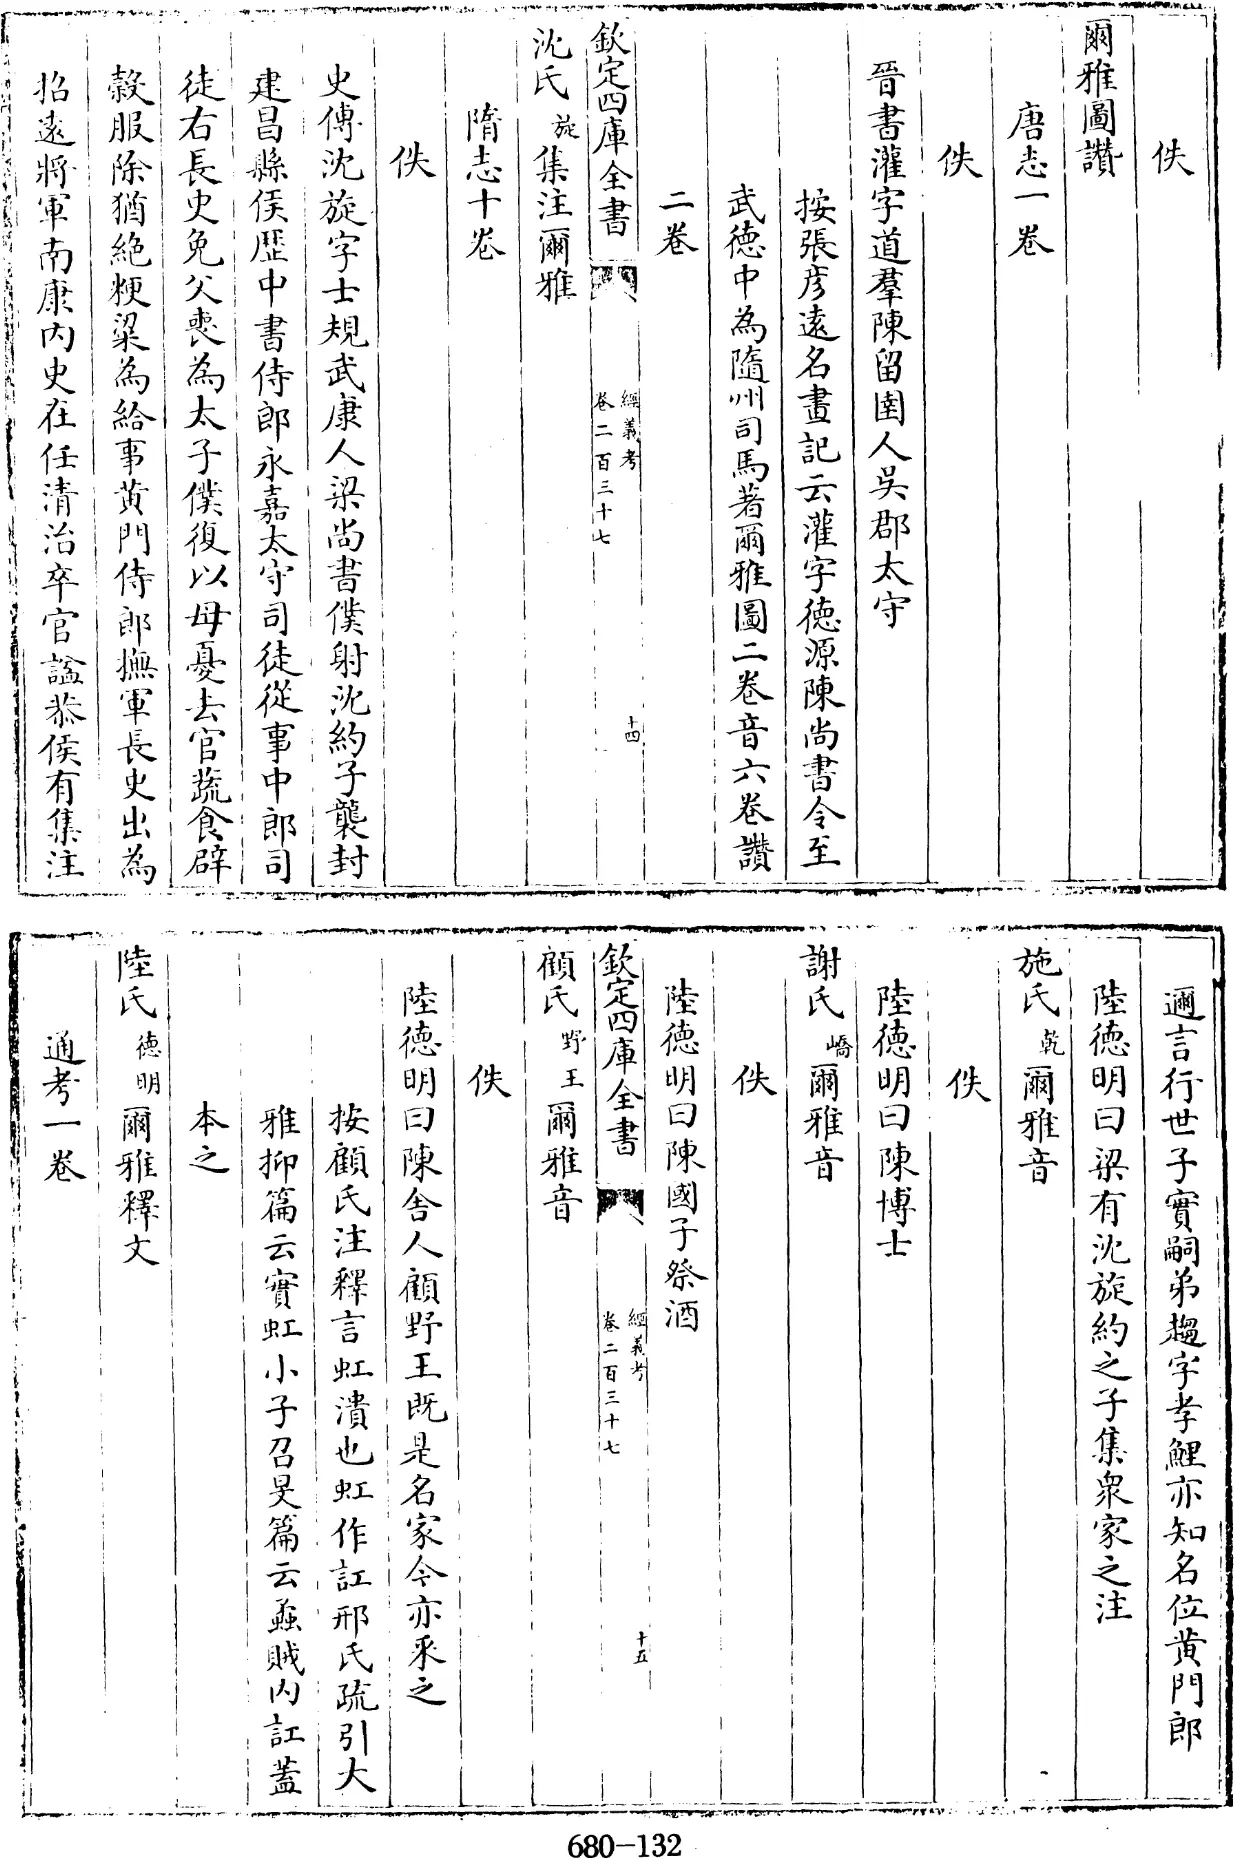 佚
爾雅圖讚
唐志一卷
佚
晉書灌字道羣陳留圉人吳郡太守
按張彦逺名畫記云灌字德源陳尚書令至
武德中為隨州司馬著爾雅圖二卷音六卷讚
二卷
欽定四庫全書
經義考
卷二百三十七
十四
沈氏旋集注爾雅
隋志十卷
佚
史傳沈旋字士規武康人梁尚書僕射沈約子襲封
建昌縣侯歴中書侍郎永嘉太守司徒從事中郎司
徒右長史免父喪為太子僕復以母憂去官蔬食辟
糓服除猶絶粳粱為給事黄門侍郎撫軍長史出為
招逺將軍南康内史在任清治卒官諡恭侯有集注
邇言行世子實嗣弟趨字孝鯉亦知名位黄門郎
陸德明曰梁有沈旋約之子集衆家之注
施氏乾爾雅音
佚
陸德明曰陳博士
謝氏嶠爾雅音
佚
陸德明曰陳國子祭酒
欽定四庫全書
經義考
卷二百三十七
十五
顧氏野王爾雅音
佚
陸德明曰陳舍人顧野王既是名家今亦采之
按顧氏注釋言虹潰也虹作訌邢氏疏引大
雅抑篇云實虹小子召旻篇云蟊賊内訌葢
本之
陸氏德明爾雅釋文
通考一卷
680-132